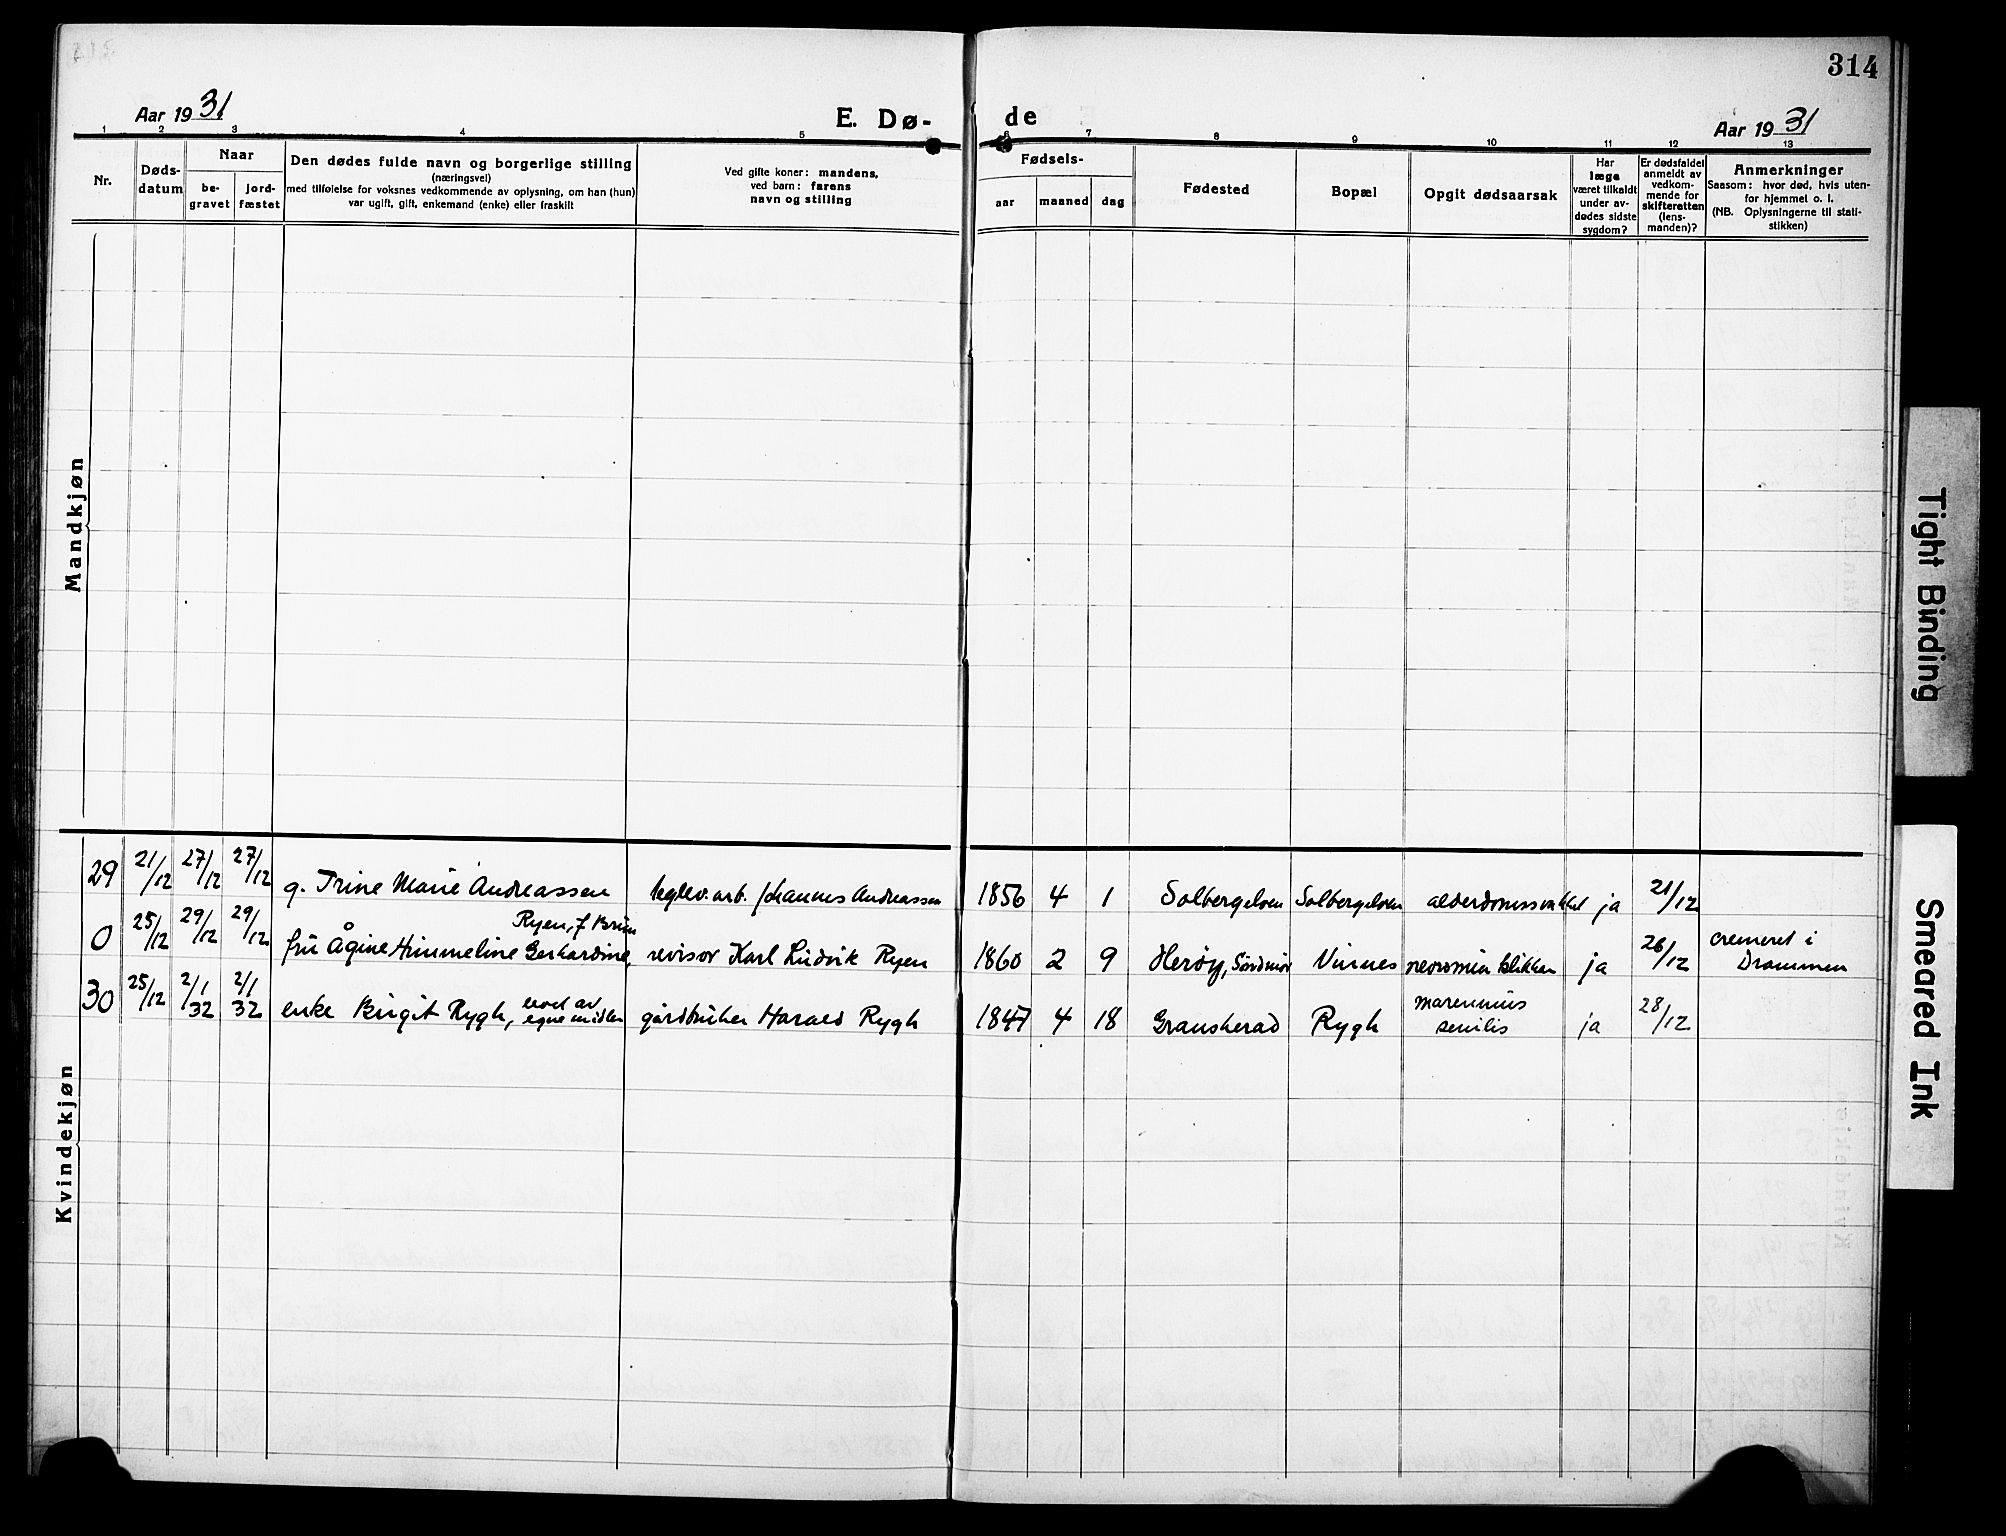 314
Aar 1931
E. Dø-
de
Aar 1931
1 2 3 4 5 6 7 8 9 10 11 12 13
Nr.
Døds-
datum
Naar
be-
gravet
jord-
fæstet
Den dødes fulde navn og borgerlige stilling
(næringsvei)
med tilføielse for voksnes vedkommende av oplysning, om han (hun)
var ugift, gift, enkemand (enke) eller fraskilt
Ved gifte koner: mandens,
ved barn: farens
navn og stilling
Fødsels-
aar
maaned
dag
Fødested
Bopæl
Opgit dødsaarsak
Har
læge
været tilkaldt
under av-
dødes sidste
sygdom?
Er dødsfaldet
anmeldt av
vedkom-
mende for
skifteretten
(lens-
manden)?
Anmerkninger
Saasom: hvor død, hvis uten-
for hjemmet o. l.
(NB. Oplysningerne til stati-
stikken)
Mandkjøn
Kvindekjøn
29 21/12 27/12 27/12 g. Trine Marie Andreassen teglev.arb. Johannes Andreassen 1856 4 1 Solbergelven Solbergelven alderdomssvakhet ja 21/12
Ryen, f Bruun
0 25/12 29/12 29/12 fru Ågine Himmeline Gerhardine, revisor Karl Ludvik Ryen 1860 2 9 Herøy, Søndmør Virnes ja 26/12 cremeret i
Drammen
30 25/12 2/1 32 2/1 32 enke Birgit Rygh, levet av
egne midler gårdbruker Harald Rygh 1847 4 18 Gransherad Rygh marasmus
senilis ja 28/12
Tight Binding
Smeared Ink